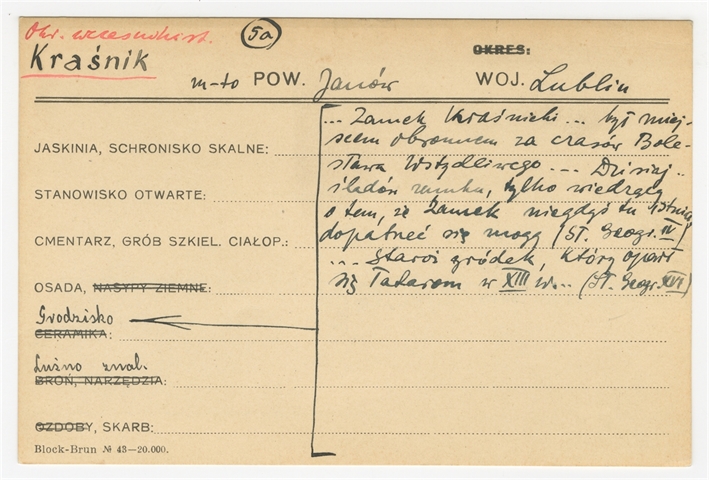 Okr. wczesnohist.
5a
OKRES:
Kraśnik
m-to POW. Janów WOJ. Lublin
... Zamek Kraśnicki ... był miej-
JASKINIA, SCHRONISKO SKALNE:
scem obronnem za czasów Bole-
sława Wstydliwego ... Dzisiaj ..
STANOWISKO OTWARTE:
śladów zamku, tylko wiedzący
o tem, że Zamek niegdyś tu istniał
CMENTARZ, GRÓB SZKIEL. CIAŁOP.:
dopatrzeć się mogą (Sł. Geogr. IV)
... Staroż. gródek, który oparł
OSADA, NASYPY ZIEMNE:
się Tatarom w XIII w... (Sł. Geogr. XVI)
Grodzisko
CERAMIKA:
Luźno znal.
BROŃ, NARZĘDZIA:
OZDOBY, SKARB:
Block-Brun № 43—20.000.